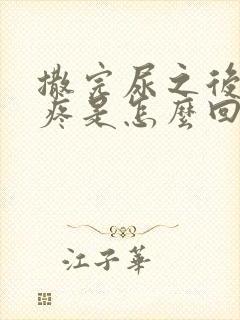 撒完尿之後
疼是怎麼回
江子華